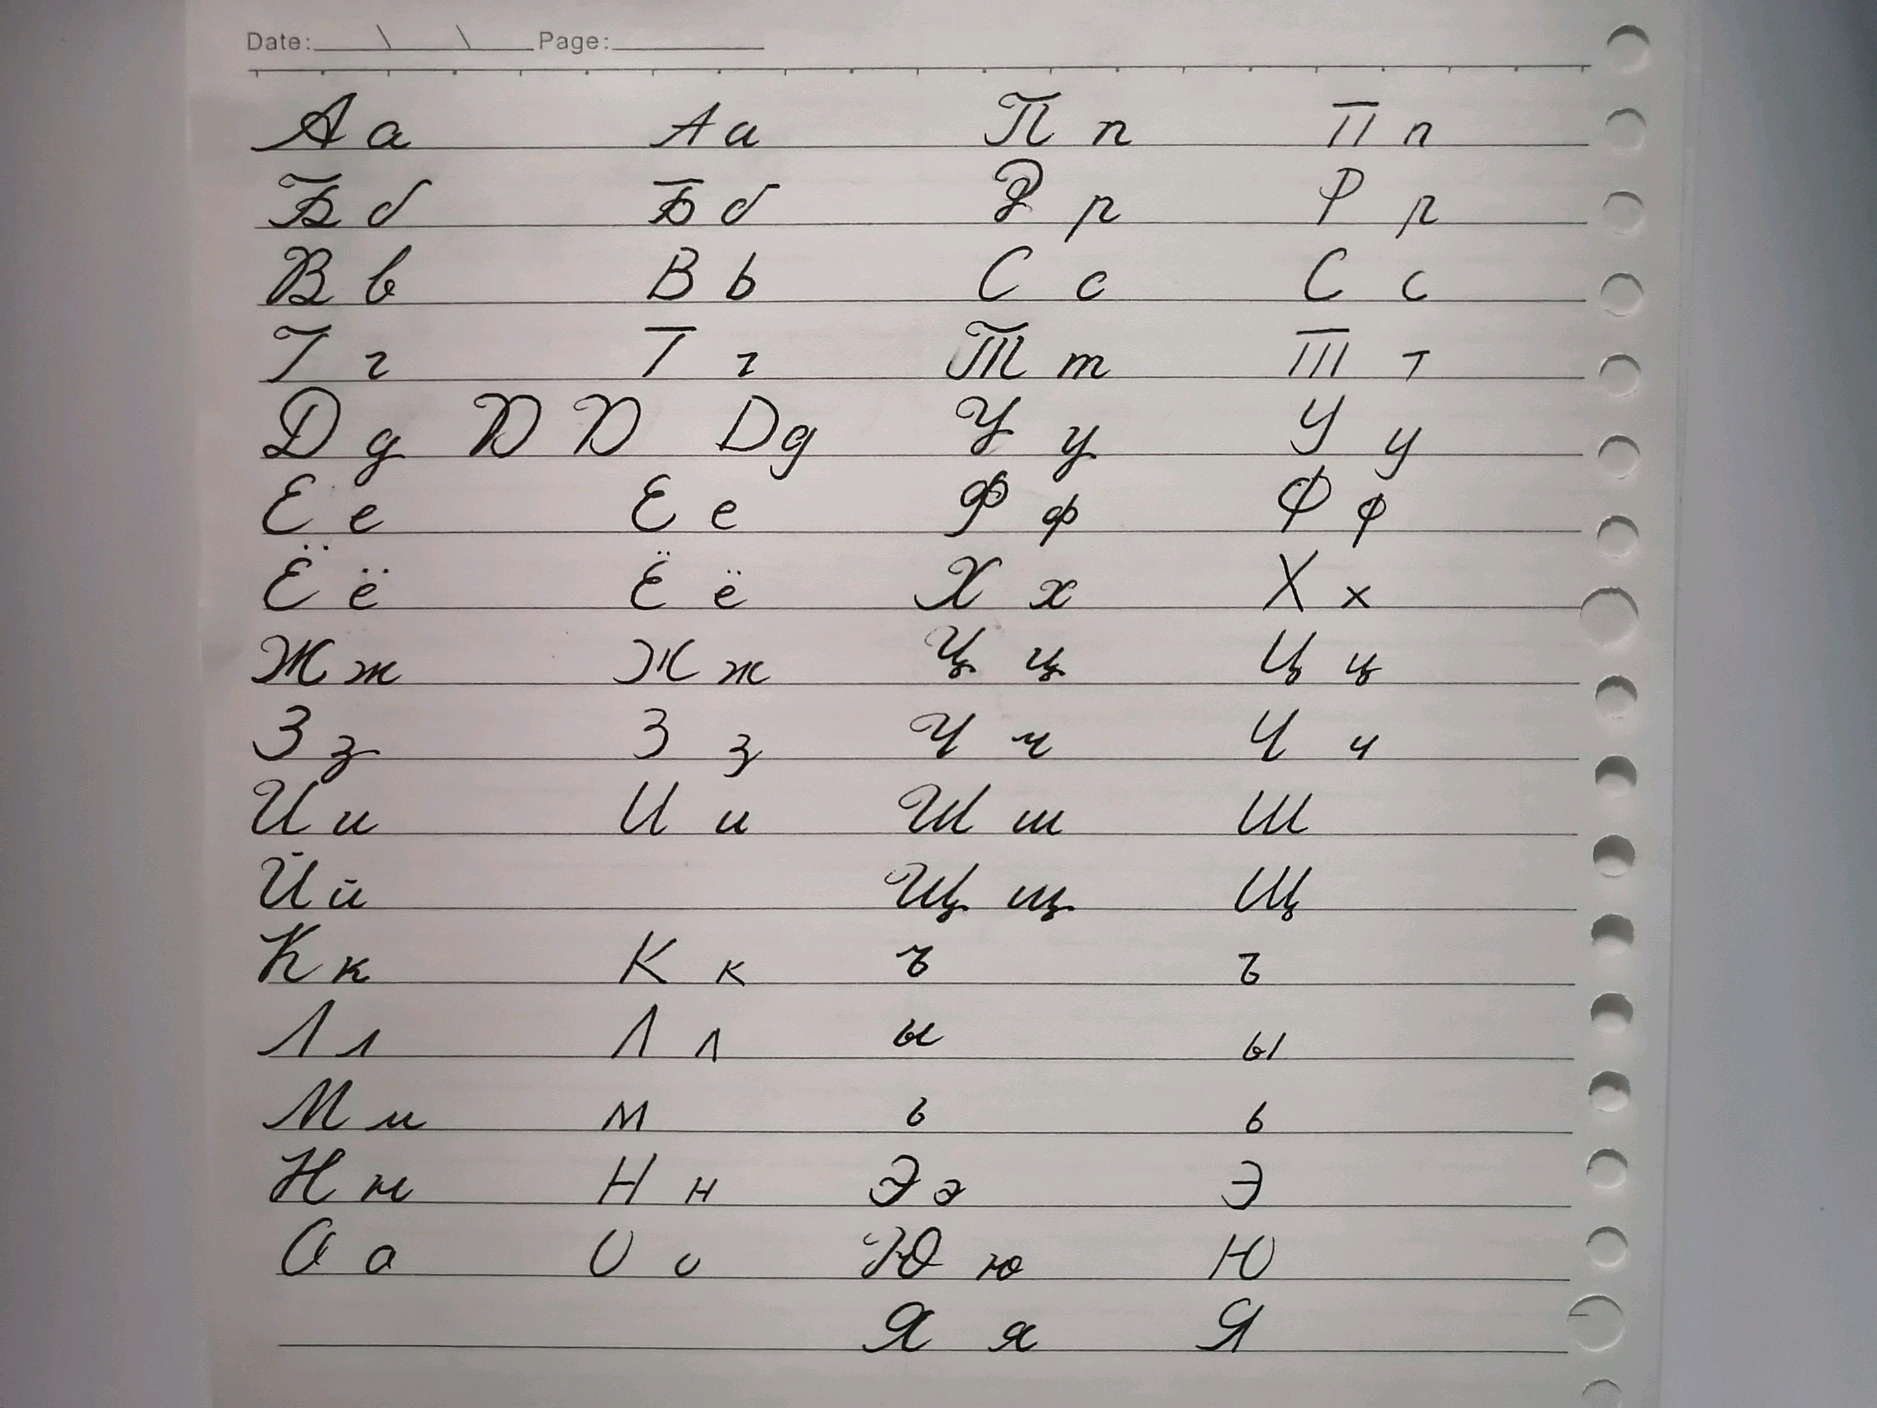 Date: \ \ Page:
А а А а П п П п
Б б Б б Р р Р р
В в В в С с С с
Г г Г г Т т Т т
Д д Д Д Д д У у У у
Е е Е е Ф ф Ф ф
Ё ё Ё ё Х х Х х
Ж ж Ж ж Ц ц Ц ц
З з З з Ч ч Ч ч
И и И и Ш ш Ш
Й й Щ щ Щ
К к К к ъ ъ
Л л Л л ы ы
М м М ь ь
Н н Н н Э э Э
О о О о Ю ю Ю
Я я Я